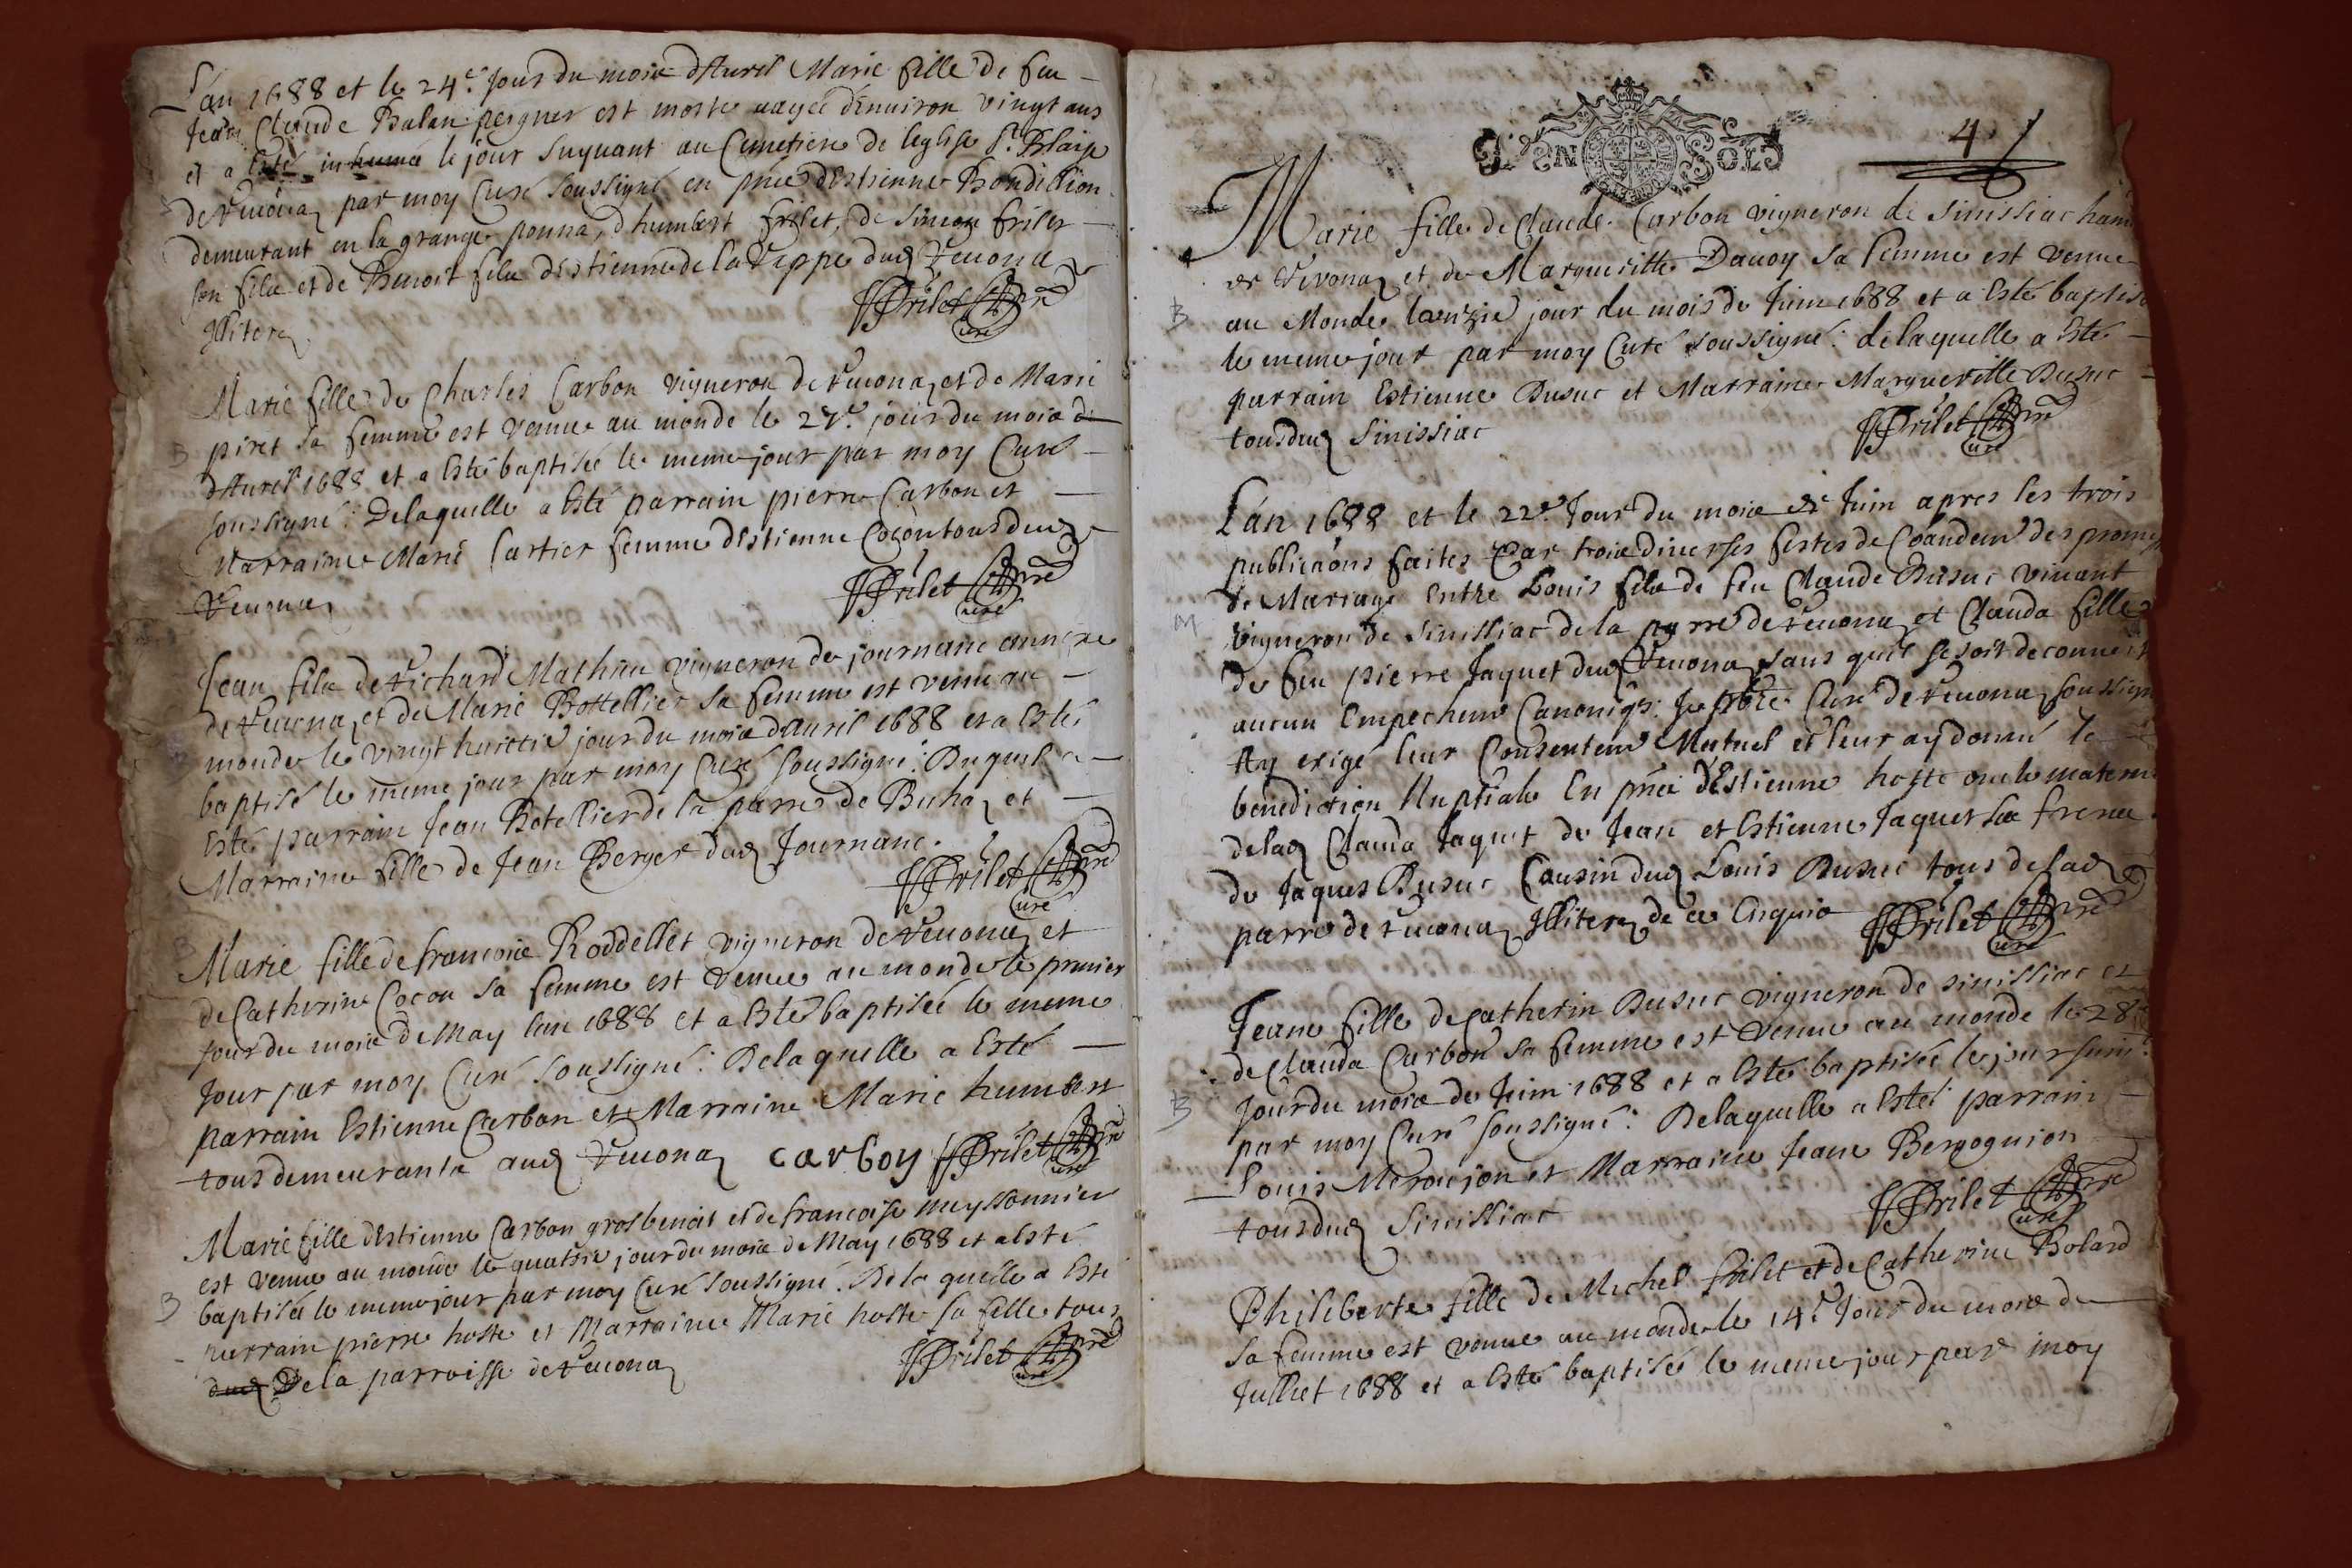 L'an 1688 et le 24e. Jour du mois d'Auril Marie fille de feu
Jean Claude Balan peigner est morte aagée d'enuiron vingt ans
et a esté inhumée le jour suyuant au Cimetiere de leglise St. Blaise
de Reuonaz par moy Curé soussigné en pnce d'Estienne Bondillion
demeurant en la grange ponna, d'humbert frilet, de Simon frilet
son fils et de Benoit fils d'Estienne de la Teppe dud Reuonaz
Illiterez
JFrilet pbre curé
Marie fille de Charles Carbon vigneron de Reuonaz et de Marie
piret sa femme est venue au monde le 27e. jour du mois de
d'Auril 1688 et a esté baptisée le meme jour par moy Curé
soussigné: Delaquelle a esté parrain pierre Carbon et
Marraine Marie Cartier femme d'Estienne Cocon tous dud
Reuonaz
JFrilet pbre curé
Jean fils de Richard Mathieu vigneron de journanc annexe
de Reuonaz et de Marie Bottellier sa femme est venu au
monde le vingt huictie jour du mois dauril 1688 et a esté
baptisé le meme jour par moy Curé soussigné: Duquel a
esté parrain Jean Botellier de la parre de Buhaz et
Marraine fille de Jean Berger dud Journanc.
JFrilet pbre curé
Marie fille de francois Roddellet vigneron de Reuonaz et
de Catherine Cocon sa femme est venue au monde le premier
jour du mois de May lan 1688 et a esté baptisée le meme
Jour par moy Curé soussigné: Delaquelle a Esté
parrain Estienne Carbon et Marraine Marie humbert
tous demeurants aud Reuonaz carboy JFrilet pbre curé
Marie fille d'Estienne Carbon grosbenoit et de francoise meyssonnier
est venue au monde le quatrie jour du mois de May 1688 et a esté
baptisée le meme jour par moy Curé soussigné. De la quelle a Esté
parrain pierre hoste et Marraine Marie hoste sa fille tous
dud De la parroisse de Reuonaz
JFrilet pbre curé
GEN DE SOLS
4
Marie fille de Claude Carbon vigneron de Sinissiac ham
de Revonaz et de Margueritte Dauoy sa femme est venue
au Monde lonzie jour du mois de Juin 1688 et a Esté baptisé
le meme jour par moy Curé soussigné: de laquelle a Esté
parrain Estienne Busuc et Marraine Margueritte Busuc
tous dud Sinissiac
JFrilet pbre curé
L'an 1688 et le 22e. Jour du mois de Juin apres les trois
publicaons faites par trois diuerses festes de Coandem des promes
de Mariage Entre Louis fils de feu Claude Busuc viuant
vigneron de Sinissiac de la parre de Reuonaz et Clauda fille
de feu pierre Jaquet dud Reuonaz sans quil se soit deconuert
aucun Empechem Canoniqs: Je pbre Curé de Reuonaz soussigné
Ay exigé leur Consentem Mutuel et leur ay donné la
benediction Nuptiale En pnce d'Estienne hoste oncle maternel
de lad Clauda Jaquet de Jean et Estienne Jaquet ses freres
de Jaques Busuc Cousin dud Louis Busuc tous de lad
parre de Reuonaz Illiterez de ce Enquis JFrilet pbre curé
Jeane fille de Catherin Busuc vigneron de sinissiac et
de Clauda Carbon sa femme est venue au monde le 28e
Jour du mois de Juin 1688 et a esté baptisée le jour suiu.
par moy Curé soussigné: Delaquelle a esté parrain
Louis Mornejon et Marraine Jeane Bergognion
tous dud Sinissiac
JFrilet pbre curé
Philiberte fille de Michel frilet et de Catherine Bolard
sa femme est venue au monde le 14e. Jour du mois de
Julliet 1688 et a Esté baptisée le meme jour par moy